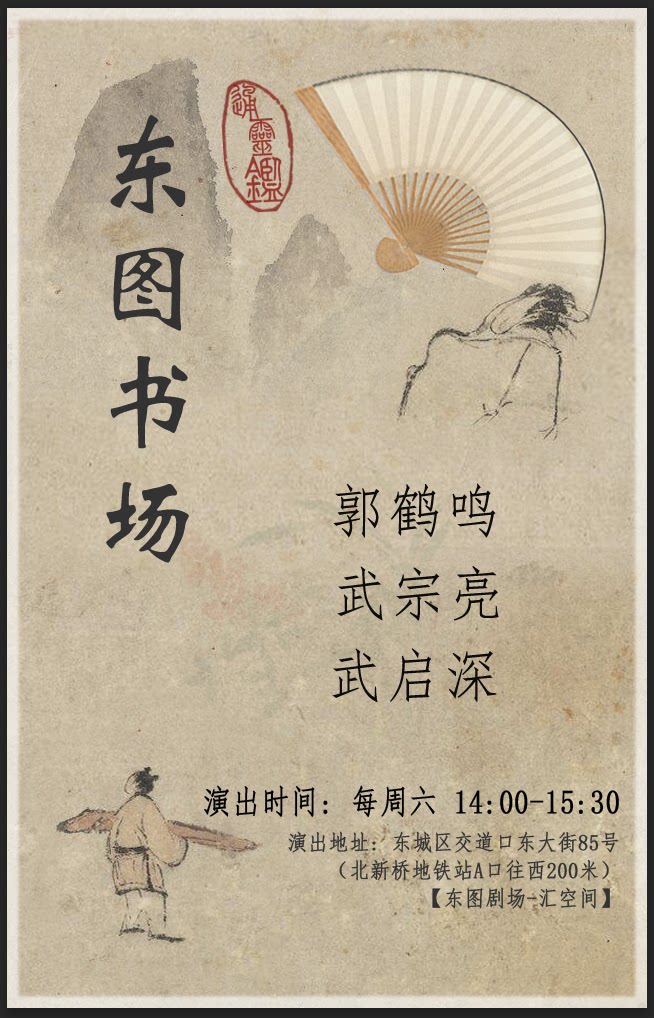 东图书场
通靈鑑
郭鹤鸣
武宗亮
武启深
演出时间：每周六 14:00-15:30
演出地址：东城区交道口东大街85号
（北新桥地铁站A口往西200米）
【东图剧场-汇空间】